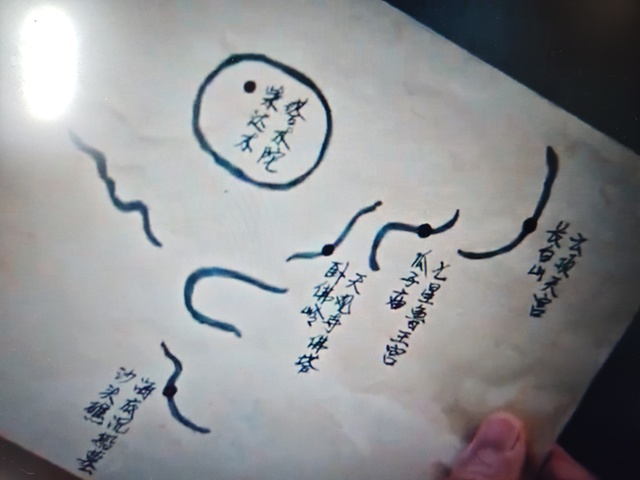 塔木陀
柴达木
云顶天宫
长白山
七星鲁王宫
瓜子庙
天观寺佛塔
卧佛岭
海底沉船墓
沙头礁